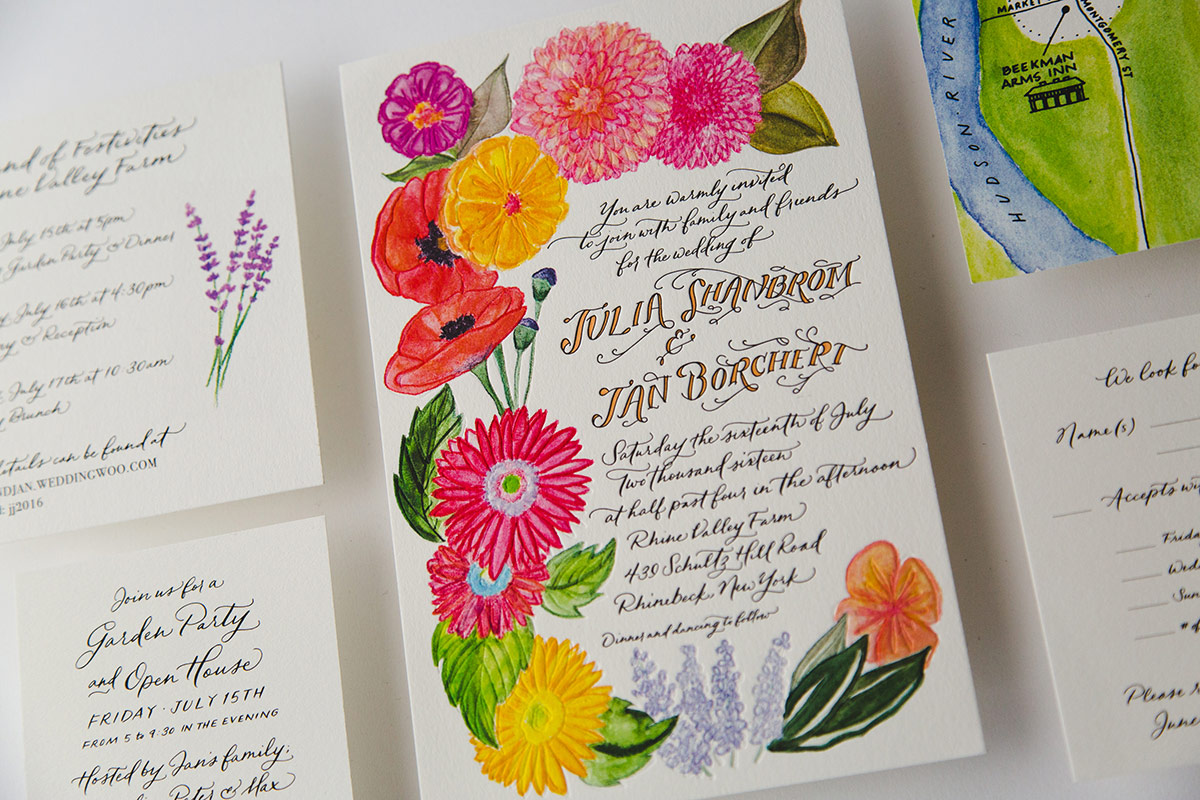 and of Festivities
Valley Farm
July 15th at 5pm
Garden Party & Dinner
July 16th at 4:30pm
& Reception
July 17th at 10:30am
Brunch
details can be found at
NDJAN.WEDDINGWOO.COM
jj2016
Join us for a
Garden Party
and Open House
FRIDAY · JULY 15TH
FROM 5 to 9:30 IN THE EVENING
Hosted by Jan's family;
Peter & Max
You are warmly invited
to join with family and friends
for the wedding of
JULIA SHANBROM
&
JAN BORCHERT
Saturday the sixteenth of July
Two thousand sixteen
at half past four in the afternoon
Rhine Valley Farm
439 Schultz Hill Road
Rhinebeck, New York
Dinner and dancing to follow
MARKET
MONTGOMERY ST
BEEKMAN
ARMS INN
HUDSON RIVER
We look fo
Name(s)
Accepts wi
Frida
Wedd
Sun
# of
Please r
June